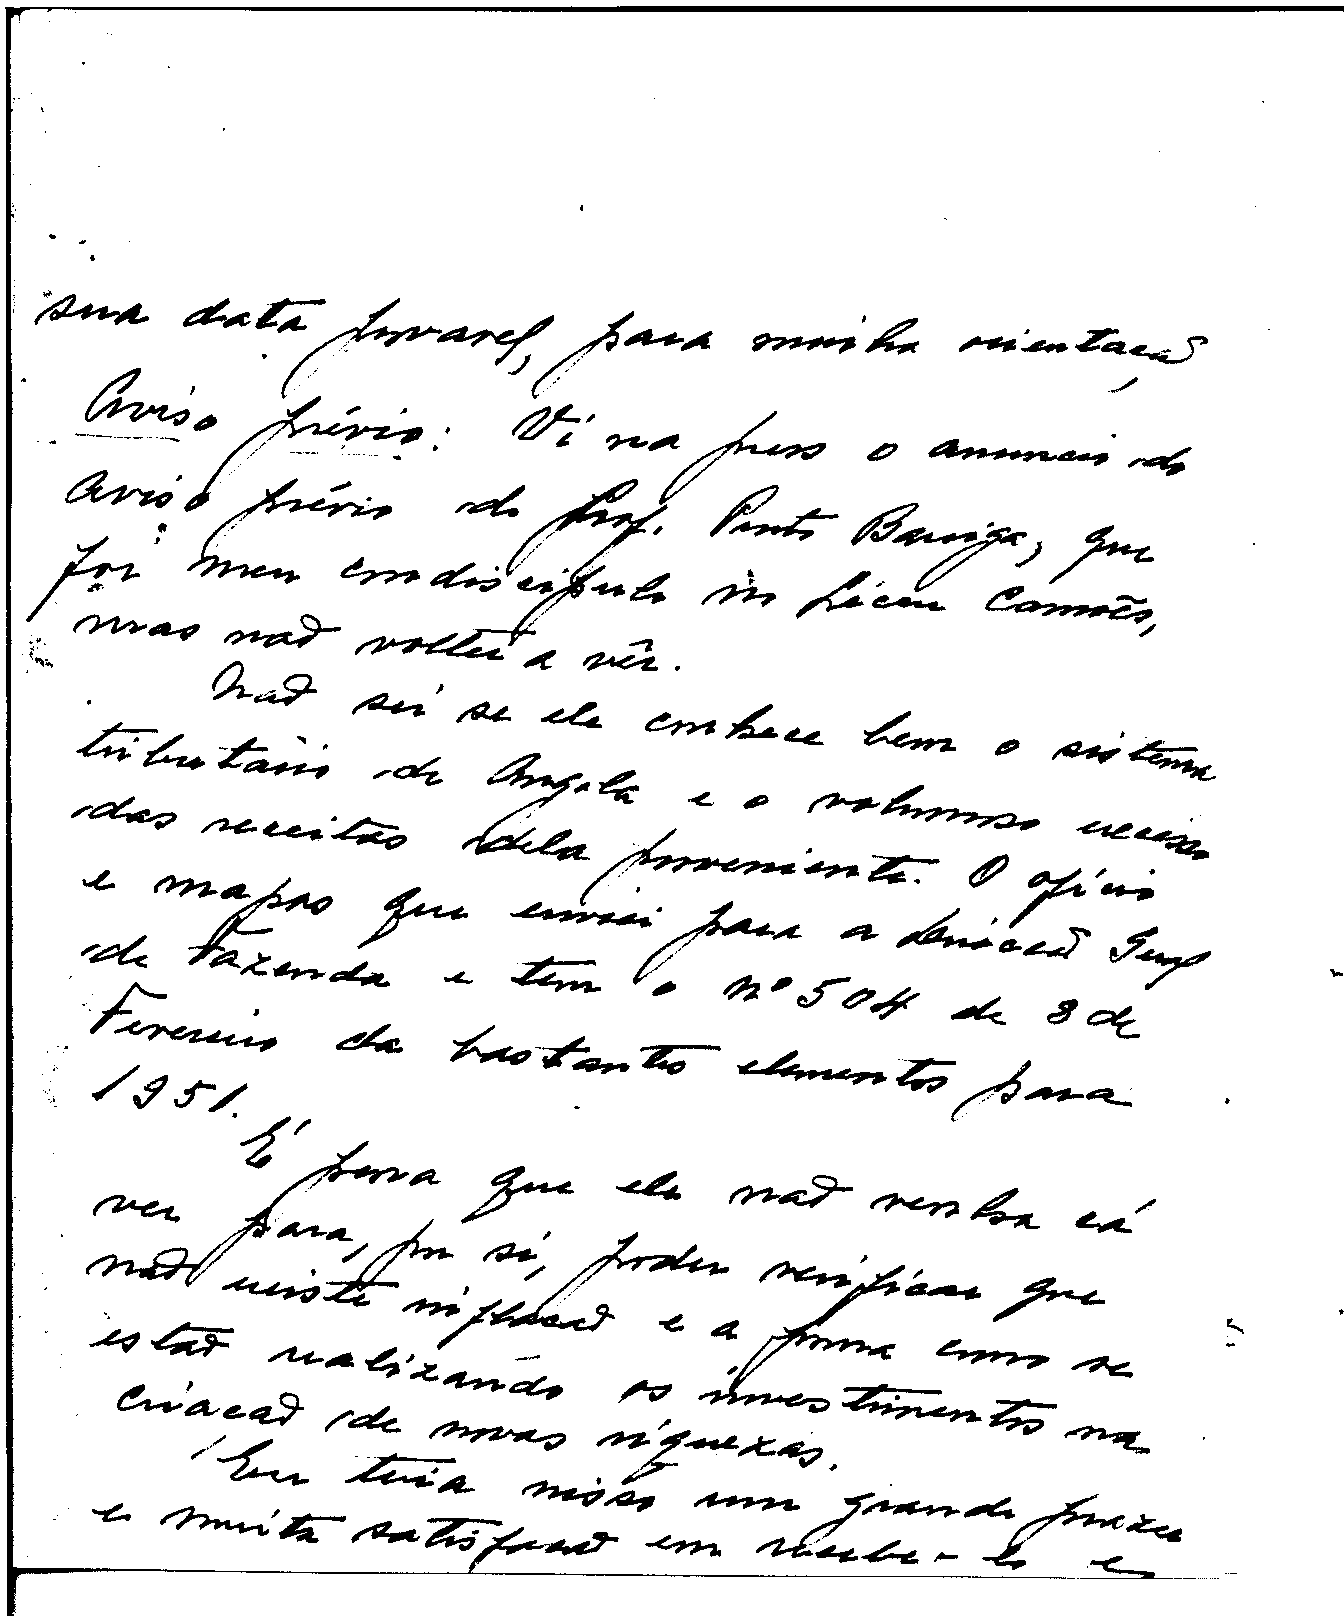 sua data provavel, para minha orientação
Aviso prévio: Vi na press o anuncio do
aviso prévio do Prof. Pinto Barriga, que
foi meu condiscipulo no Liceu Camões,
mas não voltei a vêr.
Não sei se ele conhece bem o sistema
tributário de Angola e o volumoso
das receitas dela proveniente. O ofício
e mapas que enviei para a Direcção Geral
de Fazenda e tem o nº 504 de 3 de
Fevereiro da bastantes elementos para
1951.
É pena que ele não venha cá
ver para, por si, poder verificar que
não existe inflacão e a forma como se
estão realizando os investimentos na
criacão de novas riquezas.
Eu teria nisso um grande prazer
e muita satisfacão em recebe-lo e